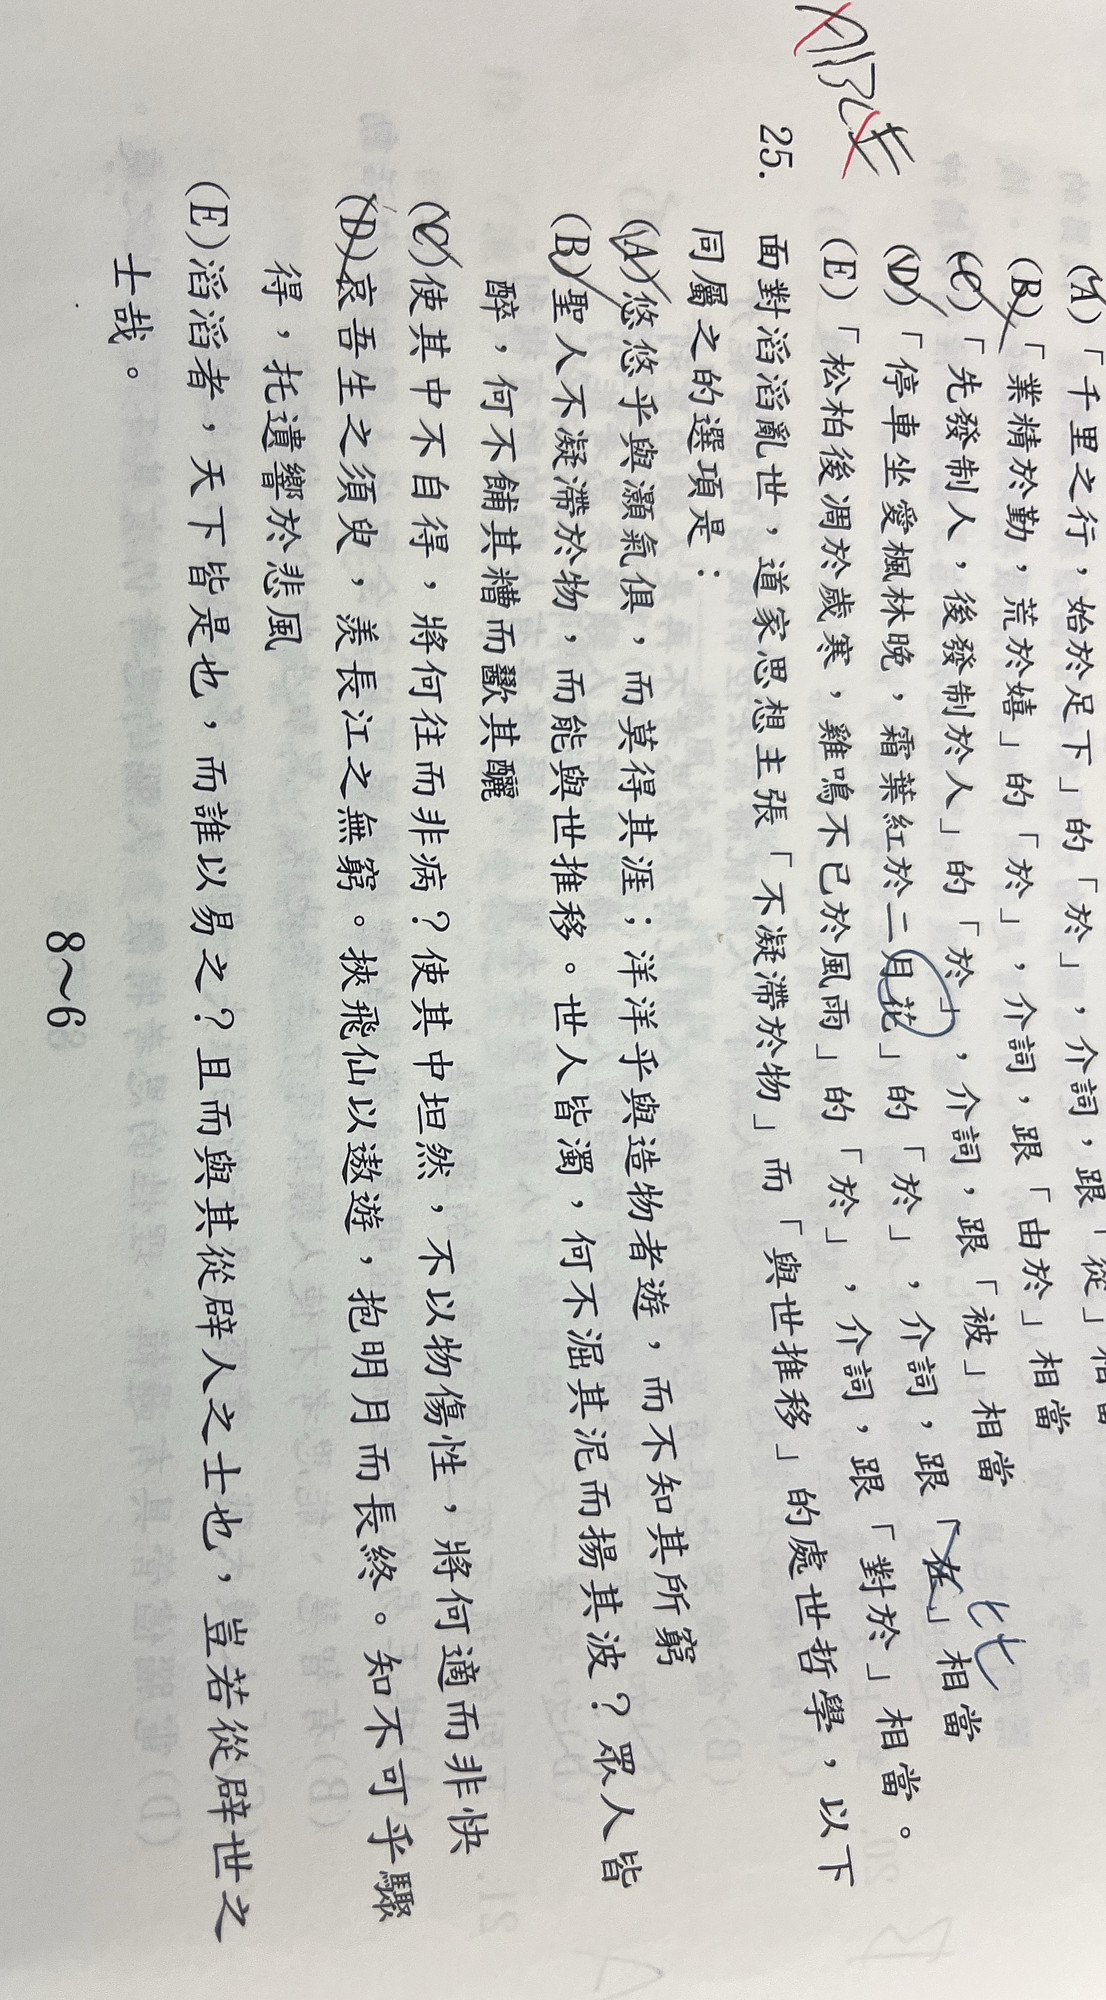 (A)「千里之行，始於足下」的「於」，介詞，跟「從」相當
(B)「業精於勤，荒於嬉」的「於」，介詞，跟「由於」相當
(C)「先發制人，後發制於人」的「於」，介詞，跟「被」相當
(D)「停車坐愛楓林晚，霜葉紅於二月花」的「於」，介詞，跟「在」相當
比
(E)「松柏後凋於歲寒，雞鳴不已於風雨」的「於」，介詞，跟「對於」相當。
25. 面對滔滔亂世，道家思想主張「不凝滯於物」而「與世推移」的處世哲學，以下
同屬之的選項是：
(A)悠悠乎與灝氣俱，而莫得其涯；洋洋乎與造物者遊，而不知其所窮
(B)聖人不凝滯於物，而能與世推移。世人皆濁，何不淈其泥而揚其波？眾人皆
醉，何不餔其糟而歠其釃
(C)使其中不自得，將何往而非病？使其中坦然，不以物傷性，將何適而非快
(D)哀吾生之須臾，羨長江之無窮。挾飛仙以遨遊，抱明月而長終。知不可乎驟
得，托遺響於悲風
(E)滔滔者，天下皆是也，而誰以易之？且而與其從辟人之士也，豈若從辟世之
士哉。
8~6